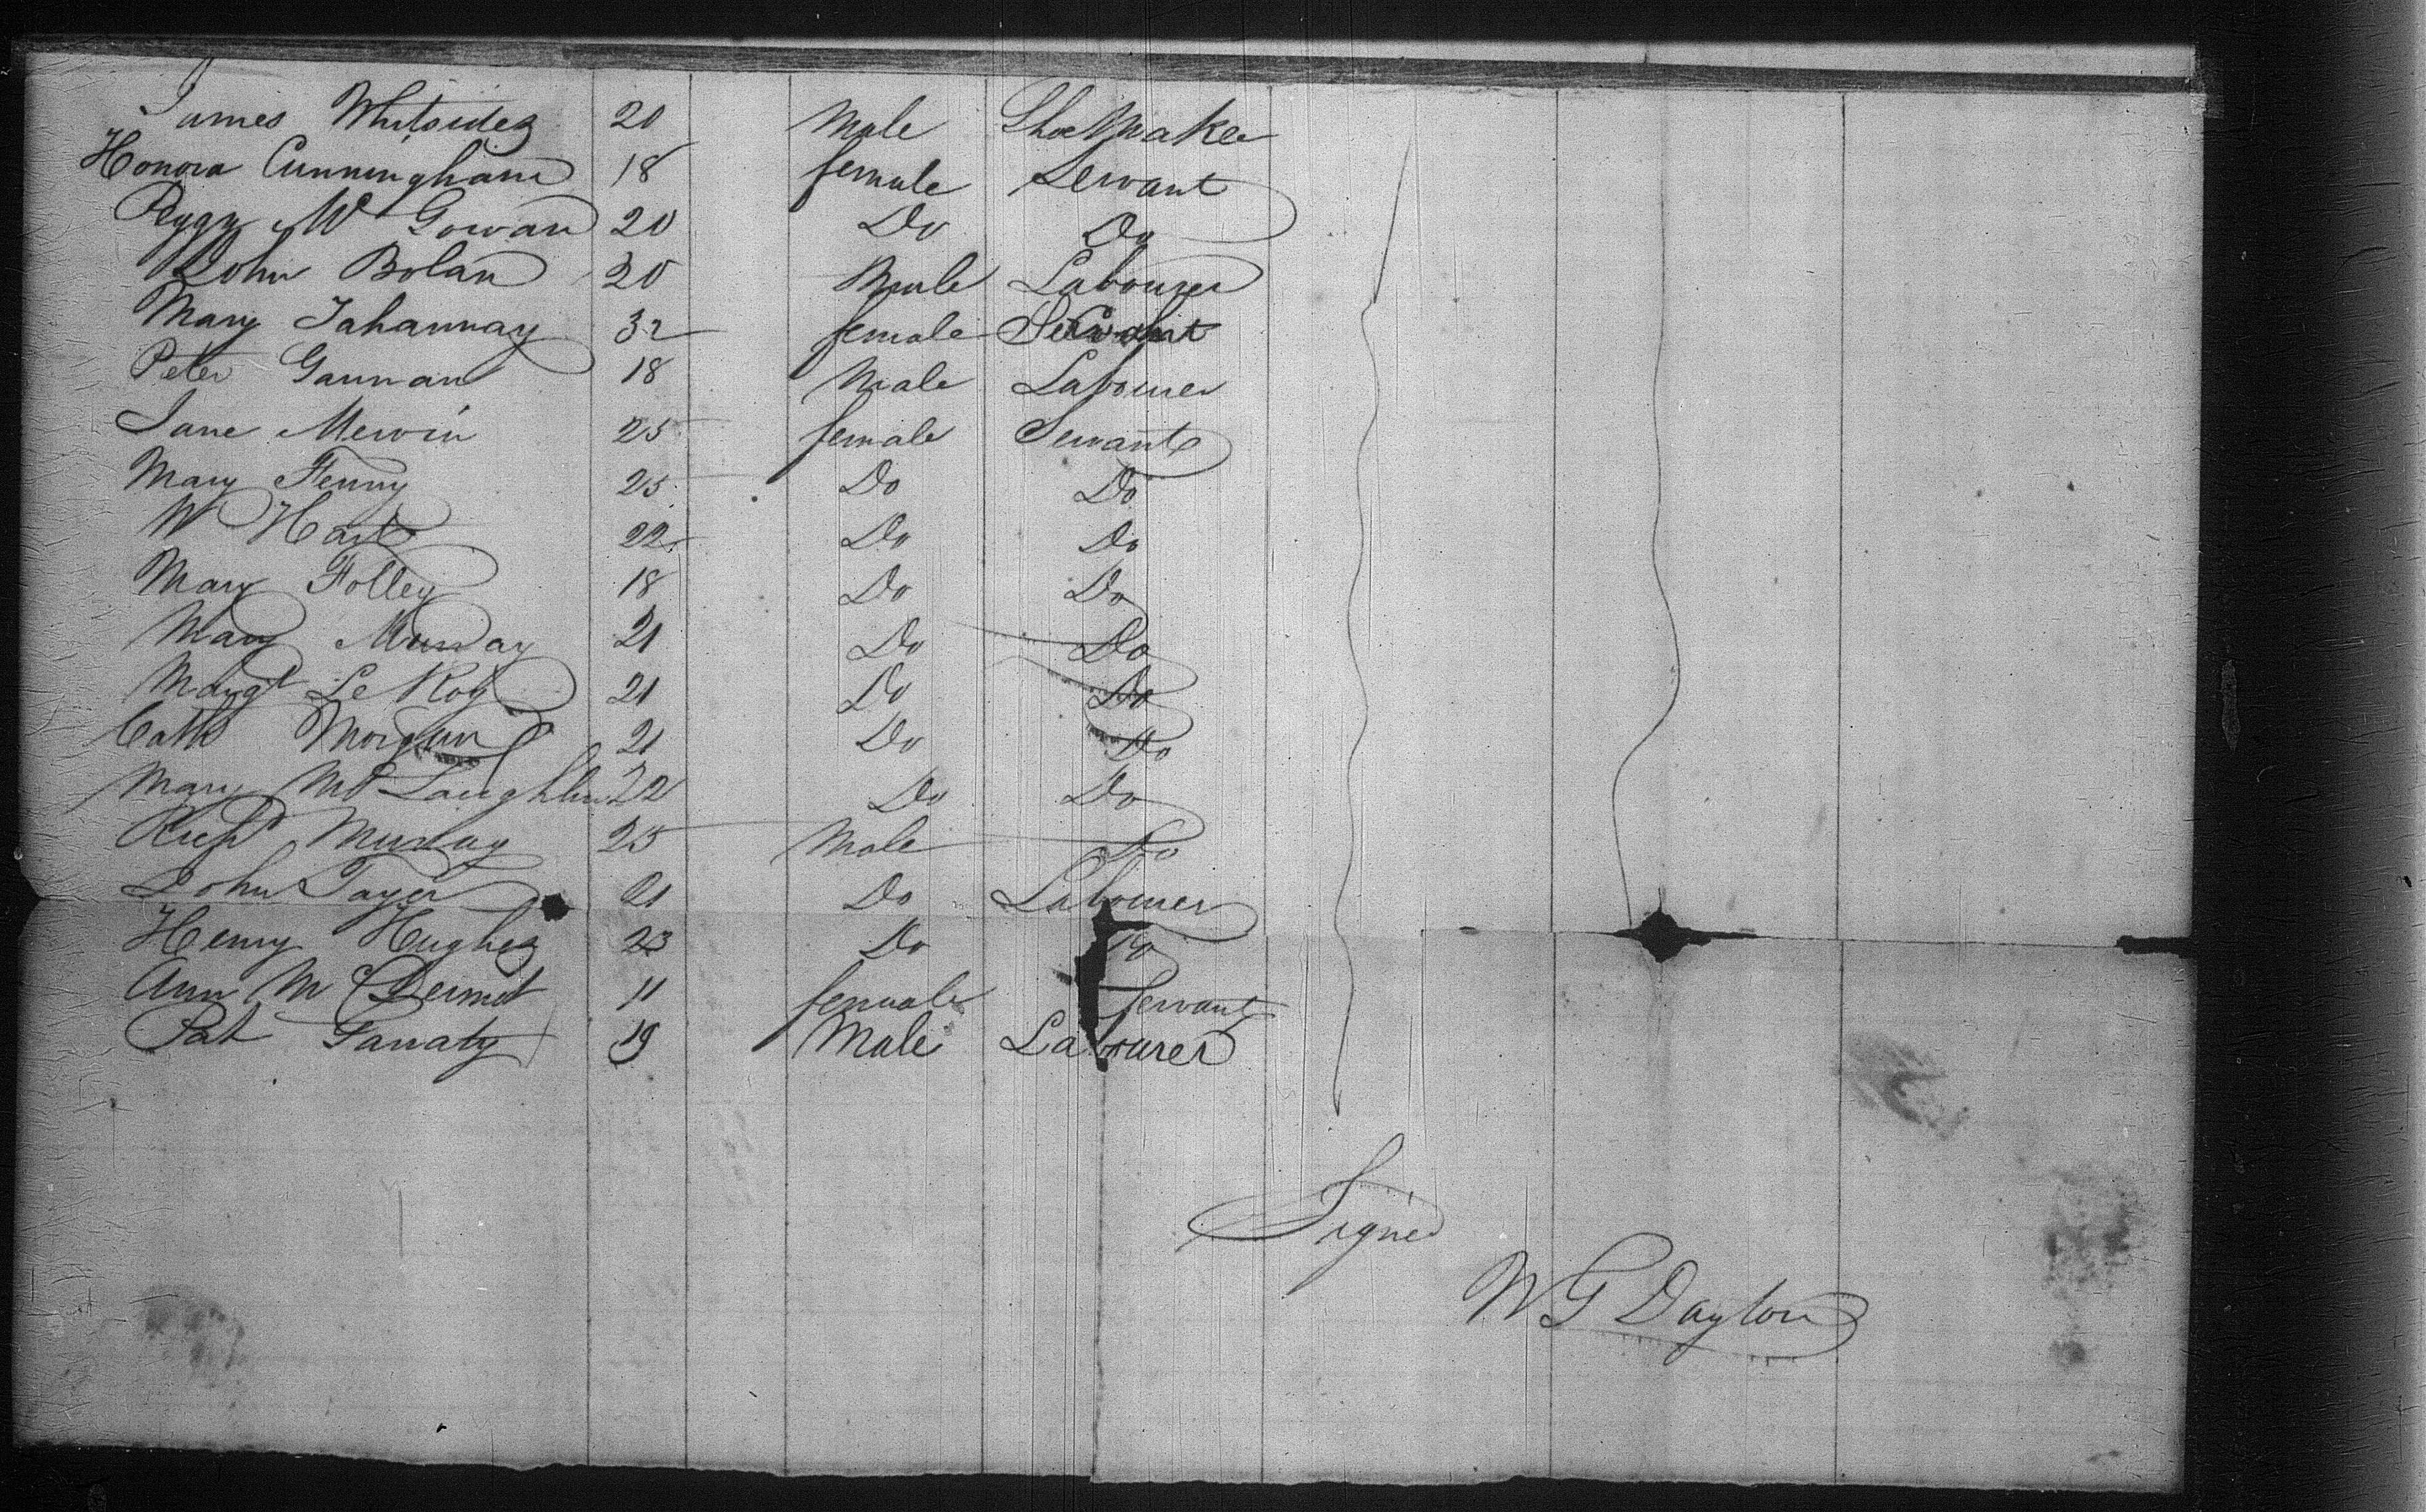 James Whitsides 20 Male Shoe Maker
Honora Cunningham 18 female Servant
Peggy Mc Gowan 20 Do Do
John Bolan 30 Male Labourer
Mary Tahannay 32 female Servant
Peter Gannan 18 Male Labourer
Jane Mervin 25 female Servant
Mary Fenny 25 Do Do
W Hart 22 Do Do
Mary Folley 18 Do Do
Mary Murray 21 Do Do
Margt Le Roy 21 Do Do
Cath Morgan 21 Do Do
Mary Mc Laughlin 22 Do Do
Richd Murray 25 Male Do
John Tayer 21 Do Labourer
Henry Hughes 23 Do Do
Ann Mc Dermot 11 female Servant
Pat Garraty 19 Male Labourer
Signed
W G Dayton